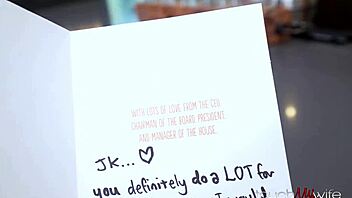 WITH LOTS OF LOVE FROM THE CEO,
CHAIRMAN OF THE BOARD, PRESIDENT,
AND MANAGER OF THE HOUSE.
JK...♡
you definitely do a LOT for
wife